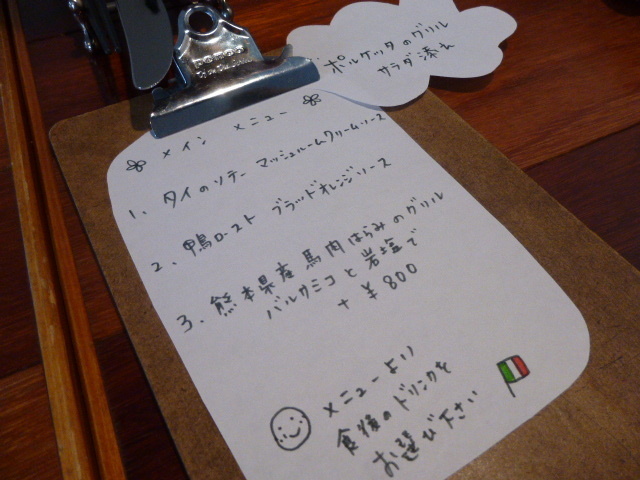 ポルケッタのグリル
サラダ添え
メイン メニュー
1、タイのソテー マッシュルームクリームソース
2、鴨ロースト ブラッドオレンジソース
3、熊本県産馬肉はらみのグリル
バルサミコと岩塩で
+ ¥800
メニューより
食後のドリンクを
お選び下さい